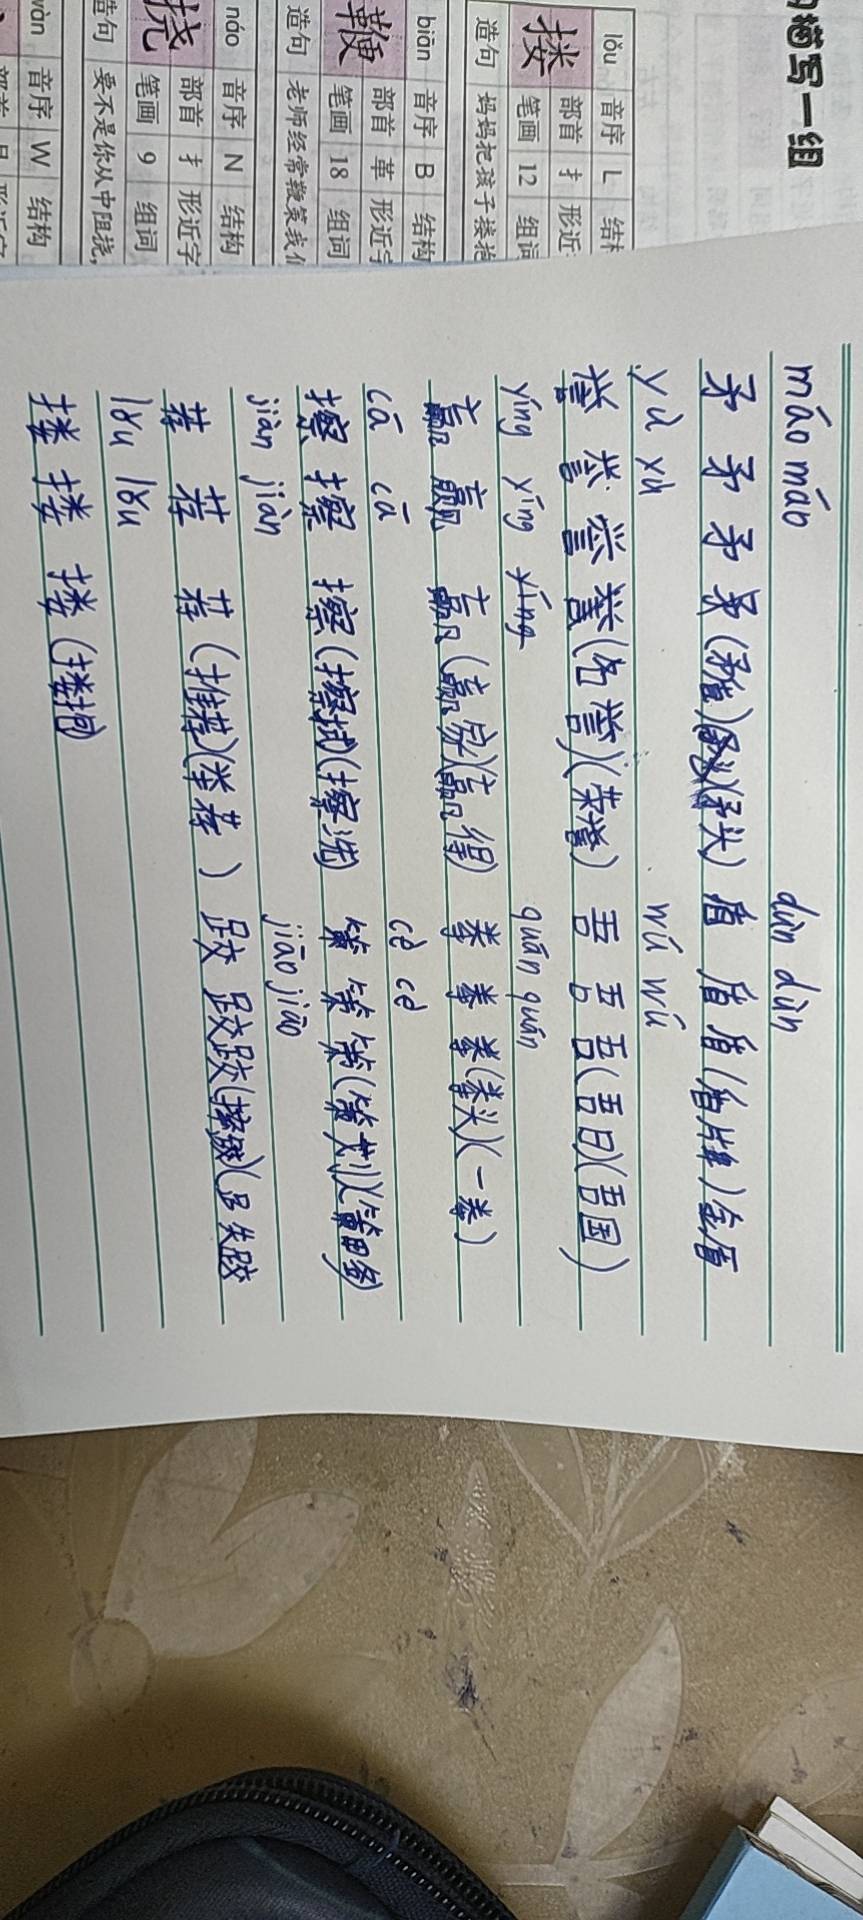 描写一组
lǒu 音序 L 结
搂 部首 扌 形近
笔画 12 组词
造句 妈妈把孩子搂抱
biān 音序 B 结构
鞭 部首 革 形近字
笔画 18 组词
造句 老师经常鞭策我们
náo 音序 N 结构
挠 部首 扌 形近字
笔画 9 组词
造句 要不是你从中阻挠,
音序 W 结构
máo máo dùn dùn
矛 矛 矛 (矛盾) (矛头) 盾 盾 盾 (盾牌) 金盾
yù yù wú wú
誉 誉 誉 誉 (名誉) (荣誉) 吾 吾 吾 (吾日) (吾国)
yíng yíng yíng quán quán
赢 赢 赢 (赢家) (赢得) 拳 拳 拳 (拳头) (一拳)
cā cā cè cè
擦 擦 擦 (擦拭) (擦洗) 策 策 策 (策划)
jiàn jiàn jiāo jiāo
荐 荐 荐 (推荐) (举荐) 跤 跤 跤 (摔跤) (足失跤
lǒu lǒu
搂 搂 搂 (搂抱)